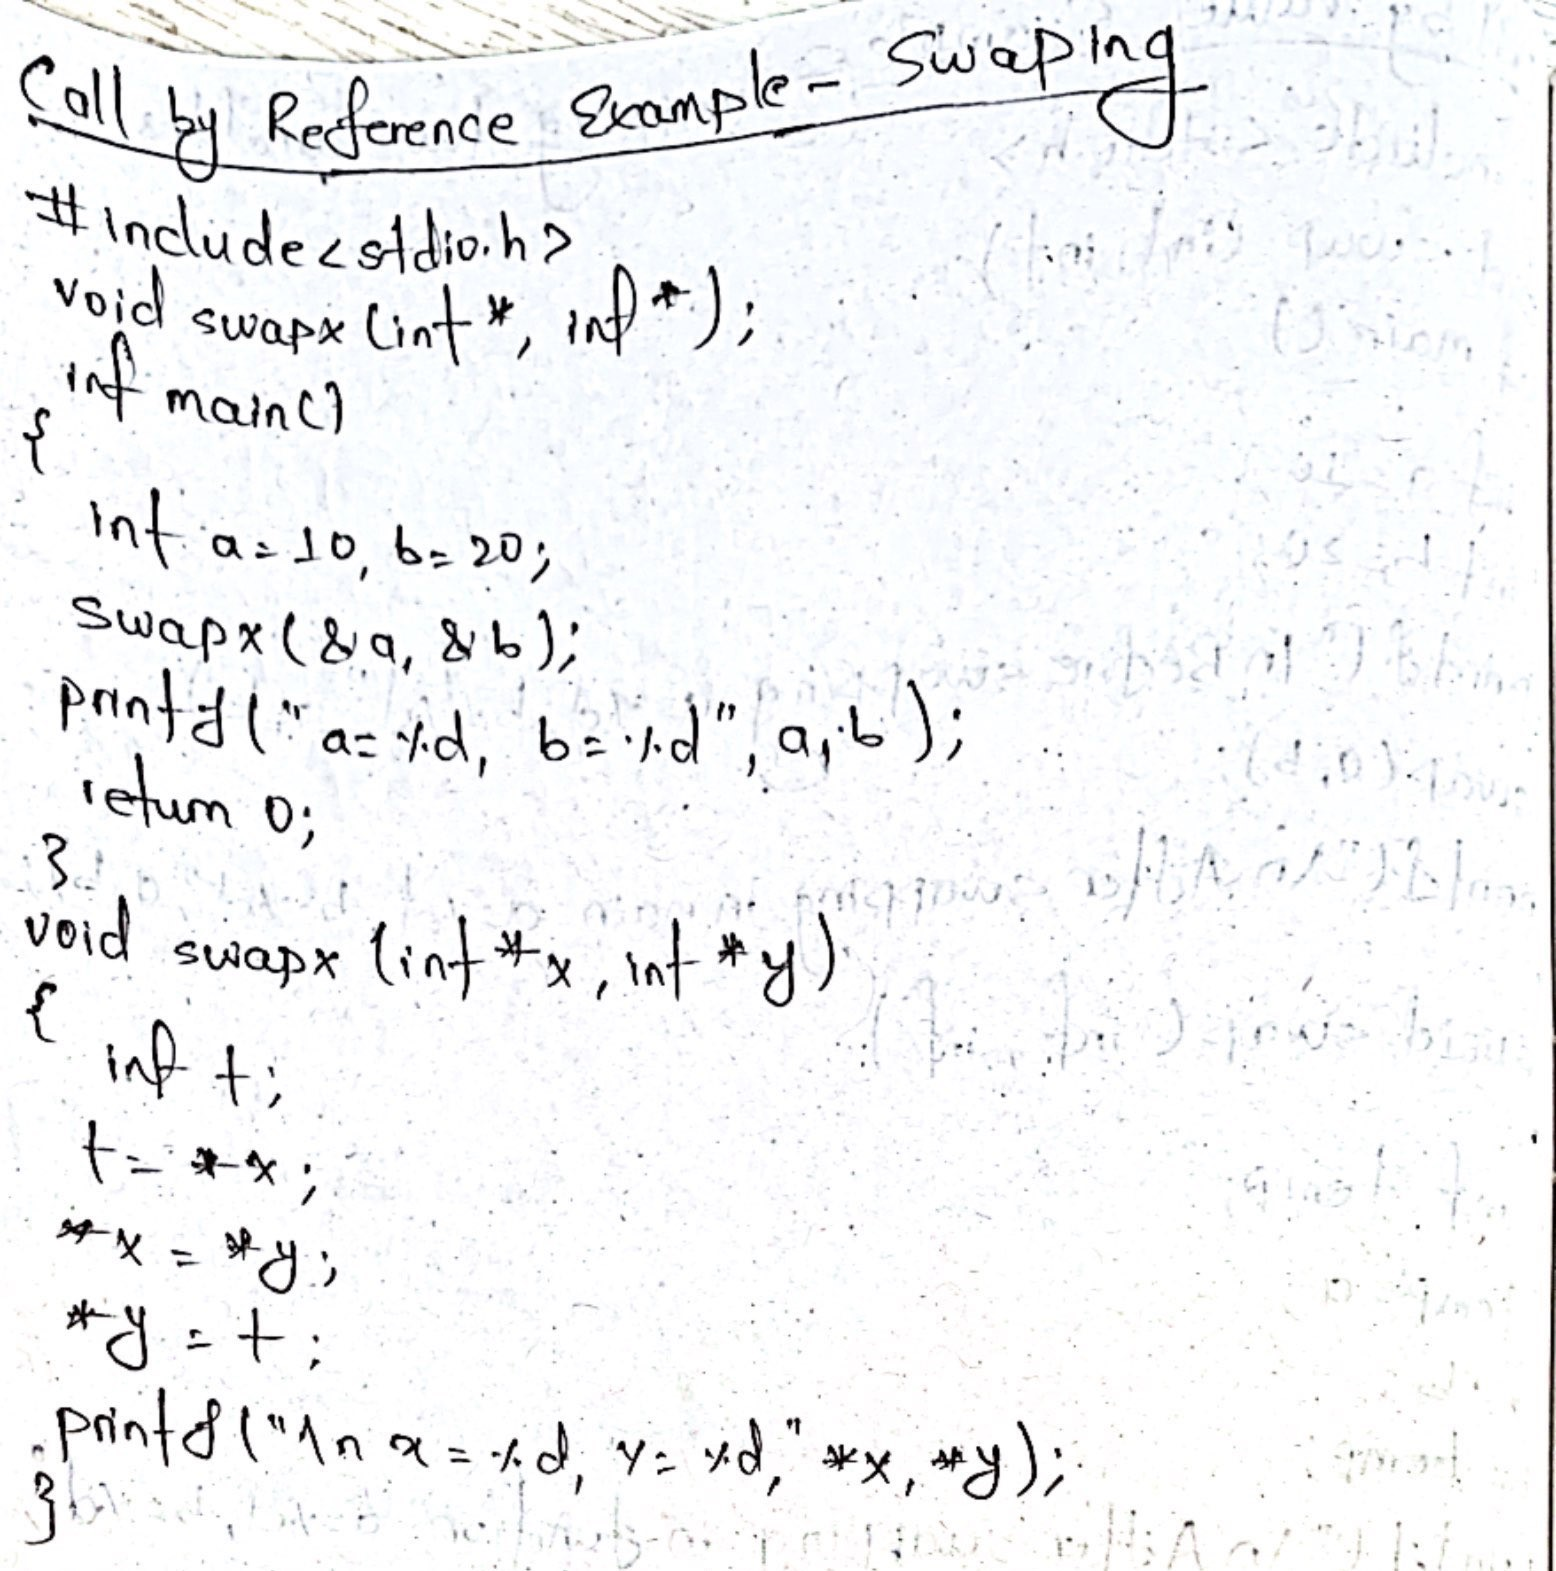 Call by Reference Example - Swaping
#include<stdio.h>
void swapx (int *, int *);
int main()
{
int a=10, b=20;
swapx (&a, &b);
printf("a=%d, b=%d", a, b);
return 0;
}
void swapx (int *x, int *y)
{
int t;
t = *x;
*x = *y;
*y = t;
printf("\n x = %d, y = %d," *x, *y);
}